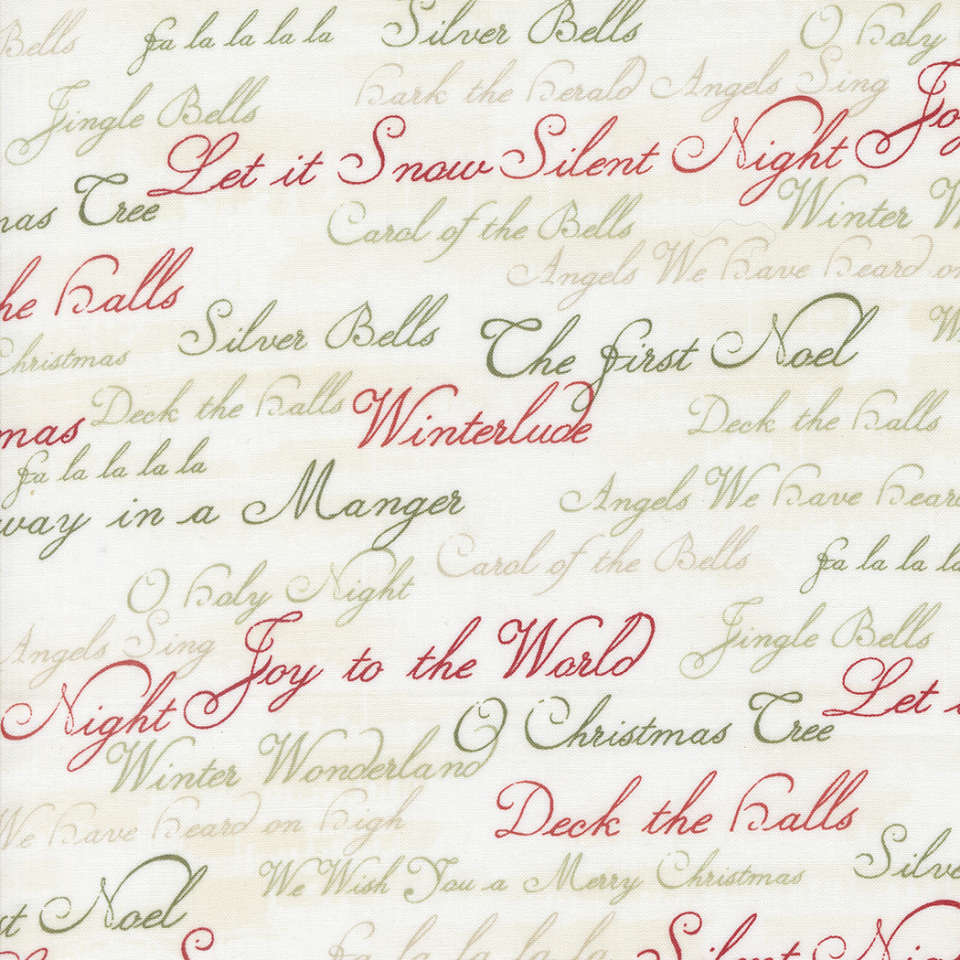 Bells fa la la la la Silver Bells O holy
Jingle Bells hark the herald Angels Sing
Let it Snow Silent Night Joy
mas Tree Carol of the Bells Winter W
Angels We have heard on
he halls Silver Bells The first Noel W
Christmas
mas Deck the halls Winterlude Deck the halls
fa la la la la
way in a Manger Angels We have heard
O holy Night Carol of the Bells fa la la la
Angels Sing Joy to the World Jingle Bells
Night O Christmas Tree Let i
Winter Wonderland
We have heard on high Deck the halls
We Wish You a Merry Christmas Silve
st Noel
fa la la la la Silent Night